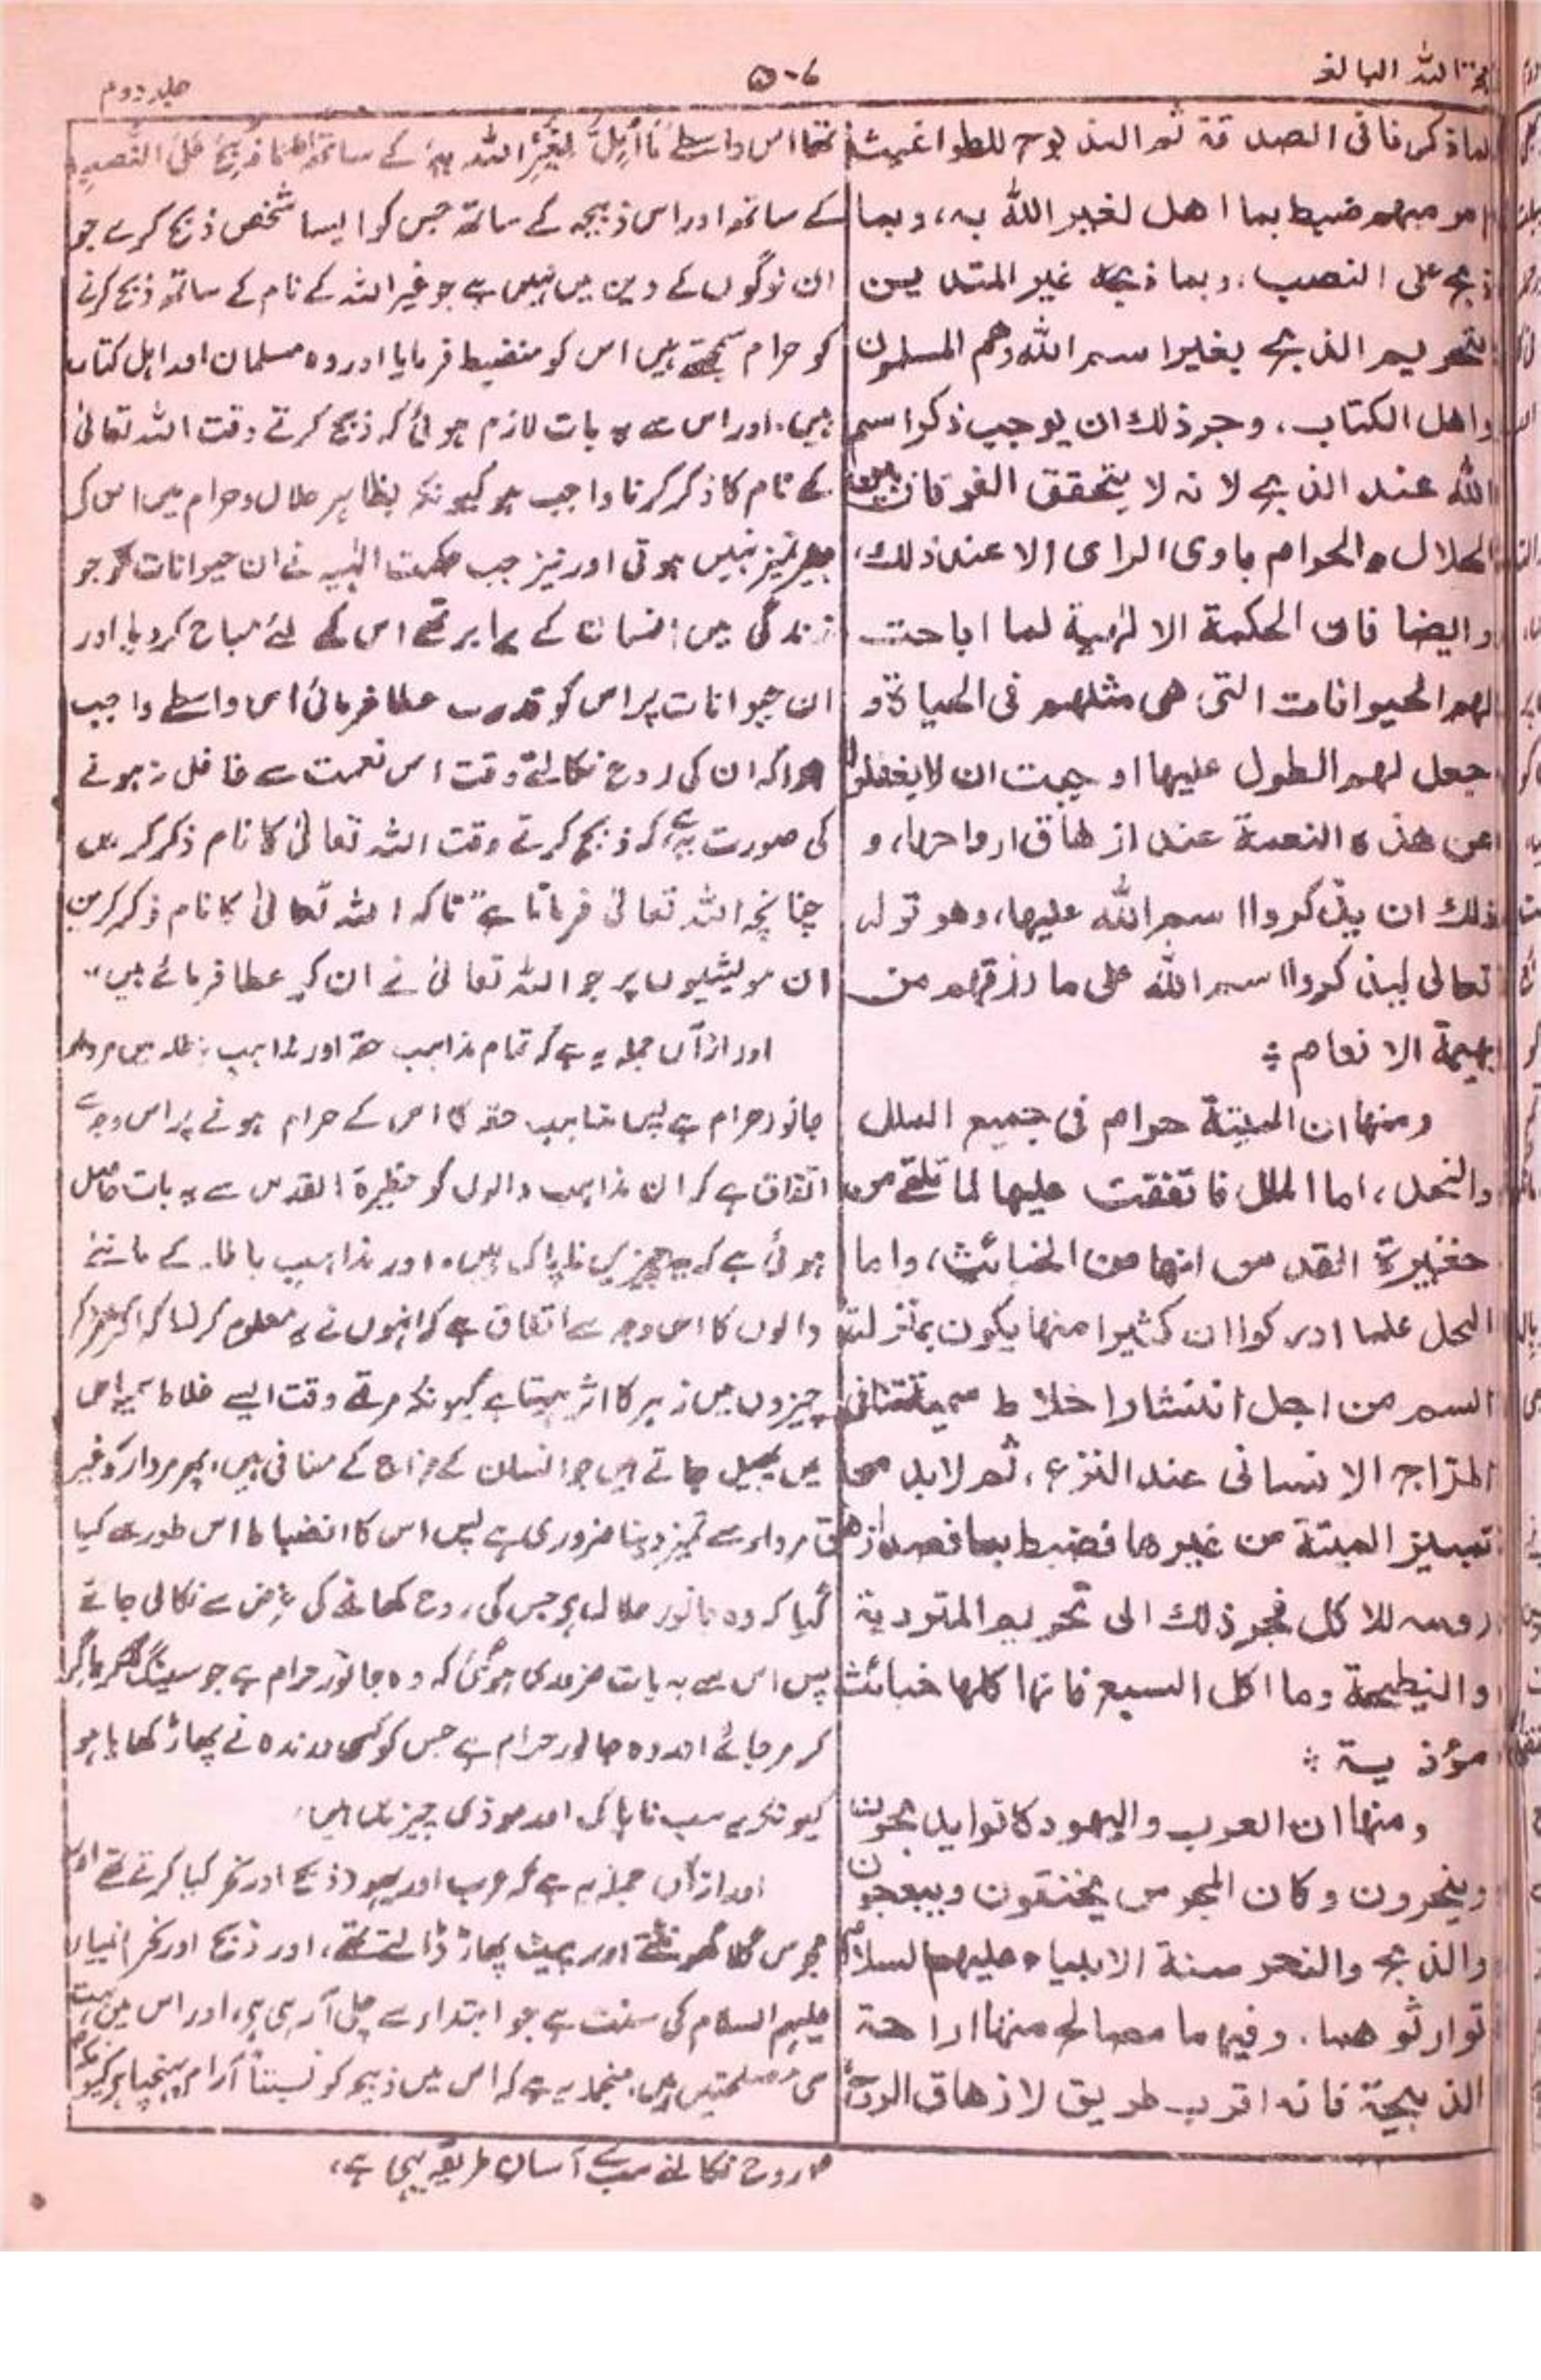 حجة الله البالغہ
۵۰۶
جلد دوم
لما ذكرنا فى الصدقة ثم المذبوح للطواغيت
امر مبهم ضبط بما اهل لغير الله به، وبما
ذبح على النصب، وبما ذبحه غير المتدين
بتحريم الذبح بغير اسم الله وهم المسلمون
واهل الكتاب، وجر ذلك ان يوجب ذكر اسم
الله عند الذبح لانه لا يتحقق الفرقان بين
الحلال والحرام بادى الراى الا عند ذلك،
وايضا فان الحكمة الالٰهية لما اباحت
لهم الحيوانات التى هى مثلهم فى الحياة و
جعل لهم الطول عليها اوجبت ان لا يغفلوا
عن هذه النعمة عند ازهاق ارواحها، و
ذلك ان يذكروا اسم الله عليها، وهو قوله
تعالى ليذكروا اسم الله على ما رزقهم من
بهيمة الانعام :
ومنها ان الميتة حرام فى جميع الملل
والنحل، اما الملل فاتفقت عليها لما تلقى من
حظيرة القدس انها من الخبائث، واما
النحل فلما ادركوا ان كثيرا منها يكون بمنزلة
السم من اجل انتشار اخلاط سمية تنافى
المزاج الانسانى عند النزع، ثم لا بد من
تمييز الميتة من غيرها فضبط بما قصد ازهاق
روحه للاكل فجر ذلك الى تحريم المتردية
والنطيحة وما اكل السبع فانها كلها خبائث
مؤذية :
ومنها ان العرب واليهود كانوا يذبحون
وينحرون وكان المجوس يخنقون ويبعجون
والذبح والنحر سنة الانبياء عليهم السلام
توارثوهما، وفيهما مصالح منها اراحة
الذبيحة فانه اقرب طريق لازهاق الروح
تھا اس واسطے مَا اُہِلَّ لِغَیْرِ اللہ بِہٖ کے ساتھ اور مَا ذُبِحَ عَلَی النُّصُبِ
کے ساتھ اور اس ذبیحہ کے ساتھ جس کو ایسا شخص ذبح کرے جو
ان لوگوں کے دین میں نہیں ہے جو غیر اللہ کے نام کے ساتھ ذبح کرنے
کو حرام سمجھتے ہیں اس کو منضبط فرمایا اور وہ مسلمان اور اہل کتاب
ہیں، اور اس سے یہ بات لازم ہوئی کہ ذبح کرتے وقت اللہ تعالیٰ
کے نام کا ذکر کرنا واجب ہو کیونکہ بظاہر حلال و حرام میں اس کے
بغیر تمیز نہیں ہوتی اور نیز جب حکمت الٰہیہ نے ان حیوانات کو جو
زندگی میں انسان کے برابر تھے اس کے لئے مباح کر دیا اور
ان حیوانات پر اس کو قدرت عطا فرمائی اس واسطے واجب
ہوا کہ ان کی روح نکالتے وقت اس نعمت سے غافل نہ ہونے
کی صورت یہ ہے کہ ذبح کرتے وقت اللہ تعالیٰ کا نام ذکر کریں
چنانچہ اللہ تعالیٰ فرماتا ہے "تاکہ اللہ تعالیٰ کا نام ذکر کریں
ان مویشیوں پر جو اللہ تعالیٰ نے ان کو عطا فرمائے ہیں"
اور ازآں جملہ یہ ہے کہ تمام مذاہب حقہ اور مذاہب باطلہ میں مردار
جانور حرام ہے پس مذاہب حقہ کا اس کے حرام ہونے پر اس وجہ سے
اتفاق ہے کہ ان مذاہب والوں کو حظیرۃ القدس سے یہ بات حاصل
ہوئی ہے کہ یہ چیزیں ناپاک ہیں، اور مذاہب باطلہ کے ماننے
والوں کا اس وجہ سے اتفاق ہے کہ انہوں نے یہ معلوم کر لیا کہ اکثر
چیزوں میں زہر کا اثر ہوتا ہے کیونکہ مرتے وقت ایسے اخلاط سمیہ اس
میں پھیل جاتے ہیں جو انسان کے مزاج کے منافی ہیں، پھر مردار کو غیر
مردار سے تمیز دینا ضروری ہے پس اس کا انضباط اس طور سے کیا
گیا کہ وہ جانور حلال ہے جس کی روح کھانے کی غرض سے نکالی جائے
پس اس سے یہ بات ضروری ہوگئی کہ وہ جانور حرام ہے جو سینگ
کر مر جائے اور وہ جانور حرام ہے جس کو کسی درندہ نے پھاڑ کھایا ہو
کیونکہ یہ سب ناپاک اور موذی چیزیں ہیں،
اور ازآں جملہ یہ ہے کہ عرب اور یہود ذبح اور نحر کیا کرتے تھے اور
مجوس گلا گھونٹتے اور پیٹ پھاڑ ڈالتے تھے، اور ذبح اور نحر انبیاء
علیہم السلام کی سنت ہے جو ابتداء سے چلی آ رہی ہے، اور اس میں بہت
سی مصلحتیں ہیں، منجملہ یہ ہے کہ اس میں ذبیحہ کو نسبتاً آرام پہنچتا ہے کیونکہ
روح نکالنے سب سے آسان طریقہ یہی ہے،